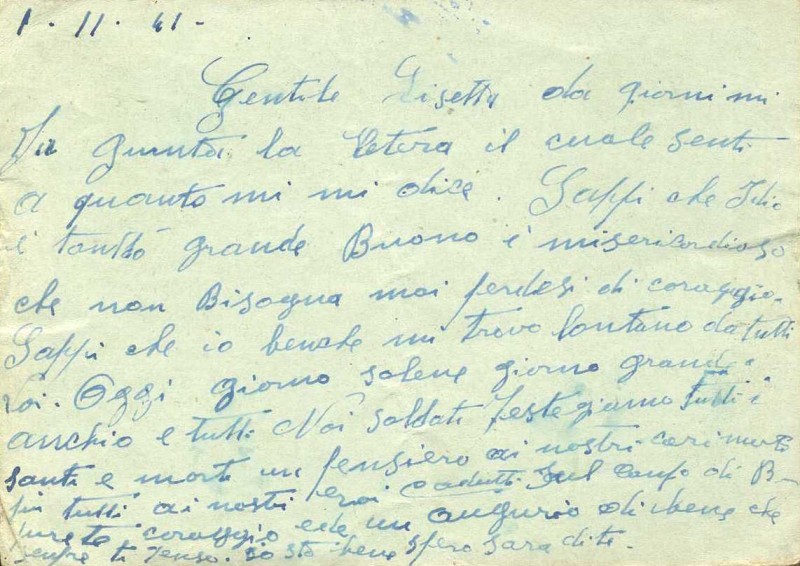 1 · 11 · 41 -
Gentile Lisetta da giorni mi
giunta la letera il cuale senti
a quanto mi mi dice. Sappi che Idio
è tanto grande Buono e misericordioso
che non Bisogna mai perdesi di coraggio.
Sappi che io benche mi trovo lontano da tutti
voi. Oggi giorno solene giorno grande
anchio e tutti Noi soldati festegiamo tutti i
santi e morti un pensiero ai nostri cari morti
più tutti ai nostri eroi caduti sul campo di
coraggio ede un augurio di bene che
senpre ti penso. io sto bene spero sara di te.